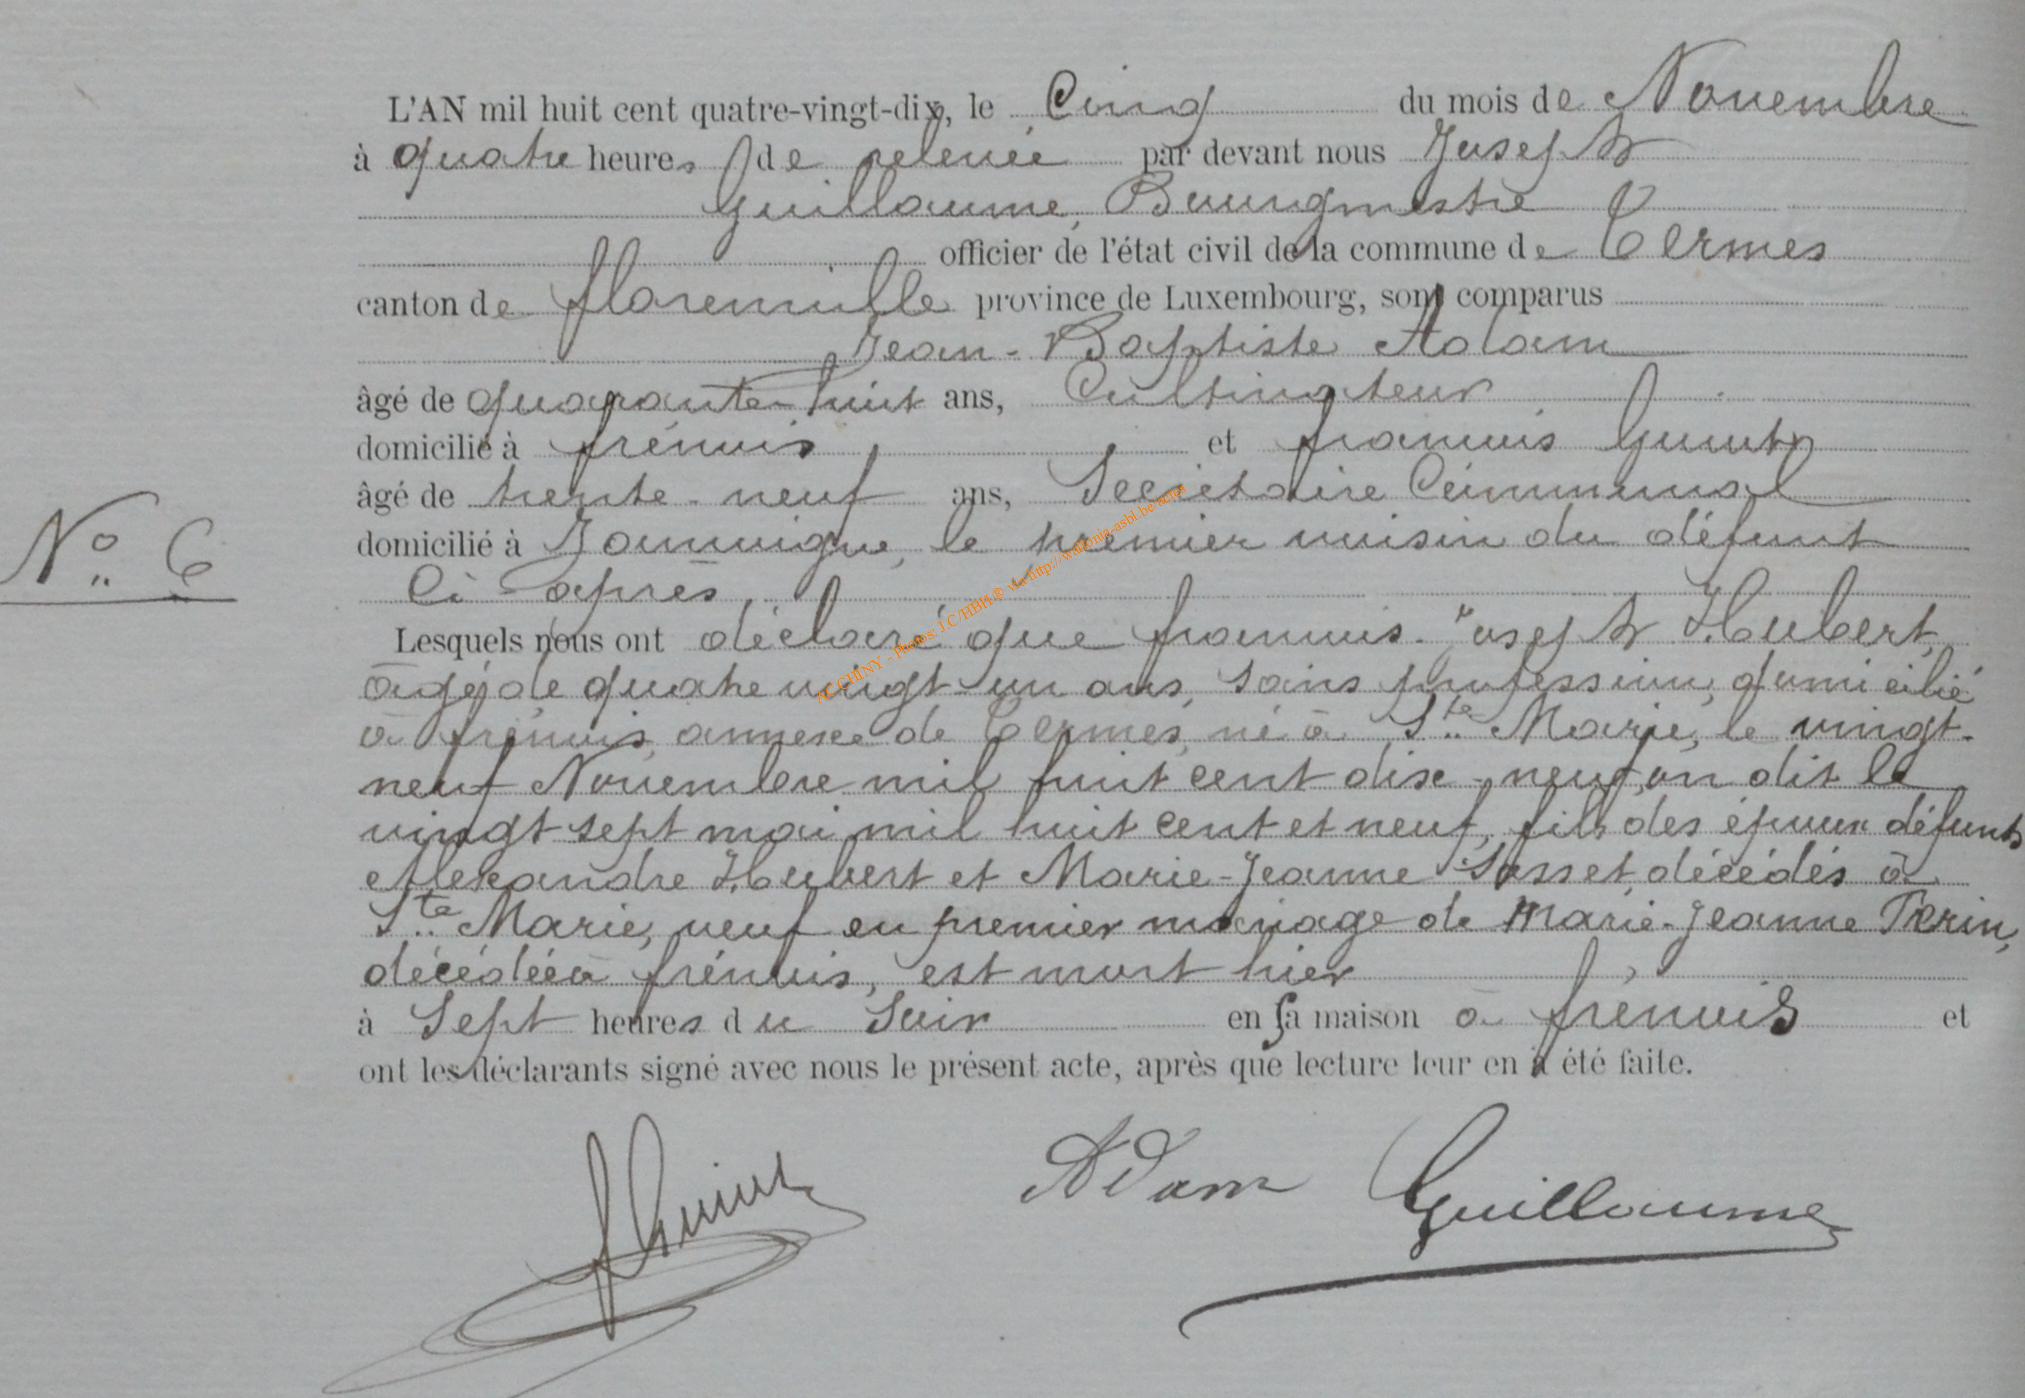 L'AN mil huit cent quatre-vingt-dix, le Cinq du mois de Novembre
à quatre heures de relevée par devant nous Joseph
Guillaume, Bourgmestre
officier de l'état civil de la commune de Termes
canton de florenville province de Luxembourg, sont comparus
Jean-Baptiste Adam
âgé de quarante-huit ans, Cultivateur
domicilié à frénois et francois Guiot
âgé de trente-neuf ans, Secrétaire Communal
domicilié à Jamoigne, le premier voisin du défunt
Ci après,
N° 6
Lesquels nous ont déclaré que francois-Joseph Hubert,
âgé de quatre vingt-un ans, sans profession, domicilié
à frénois, annexe de Termes, né à Ste Marie, le vingt-
neuf Novembre mil huit cent dix-neuf, on dit le
vingt sept mai mil huit cent et neuf, fils des époux défunts
Alexandre Hubert et Marie-Jeanne Sosset, décédés à
Ste Marie, veuf en premier mariage de Marie-Jeanne Perin,
décédée à frénois, est mort hier
à Sept heures du Soir en sa maison à frénois et
ont les déclarants signé avec nous le présent acte, après que lecture leur en a été faite.
Adam Guillaume